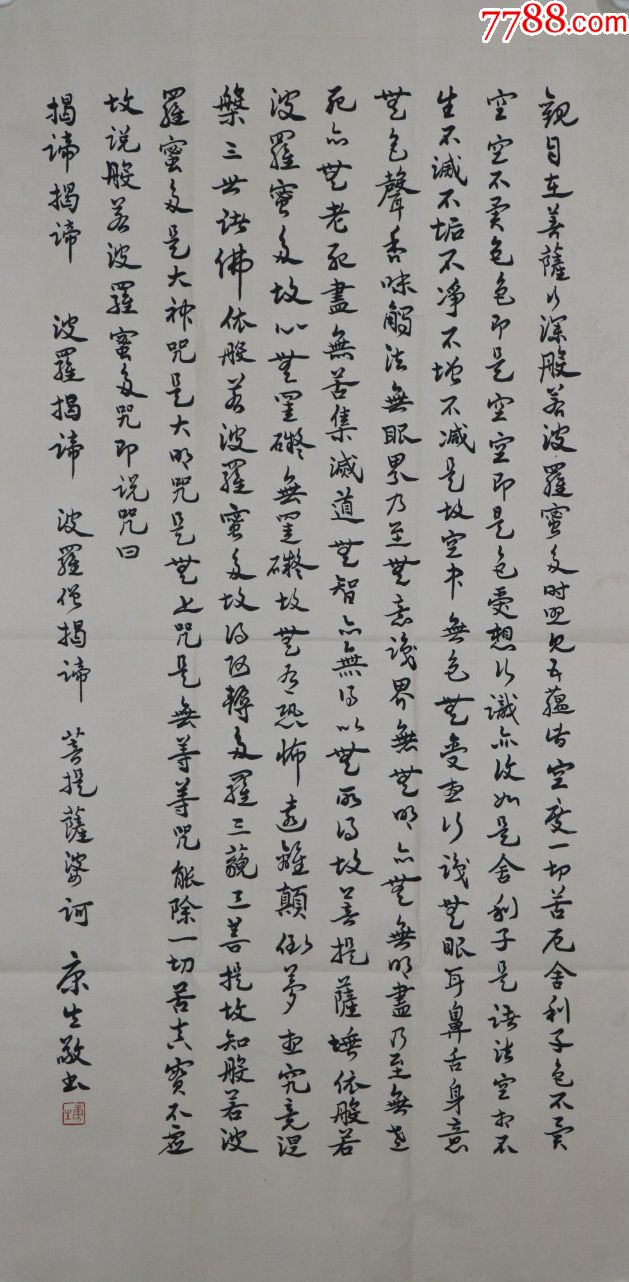 7788.com
觀自在菩薩行深般若波羅蜜多時照見五蘊皆空度一切苦厄舍利子色不異
空空不異色色即是空空即是色受想行識亦復如是舍利子是諸法空相不
生不滅不垢不淨不增不減是故空中無色無受想行識無眼耳鼻舌身意
無色聲香味觸法無眼界乃至無意識界無無明亦無無明盡乃至無老
死亦無老死盡無苦集滅道無智亦無得以無所得故菩提薩埵依般若
波羅蜜多故心無罣礙無罣礙故無有恐怖遠離顛倒夢想究竟涅
槃三世諸佛依般若波羅蜜多故得阿耨多羅三藐三菩提故知般若波
羅蜜多是大神咒是大明咒是無上咒是無等等咒能除一切苦真實不虛
故说般若波羅蜜多咒即说咒曰
揭諦揭諦 波羅揭諦 波羅僧揭諦 菩提薩婆訶 康生敬书
康生